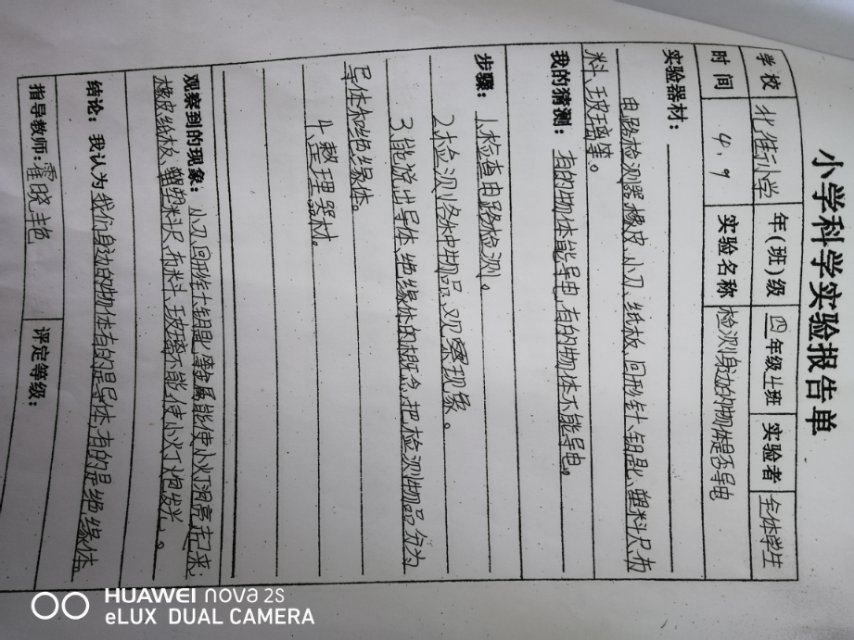 小学科学实验报告单
学校 北淮小学 年(班)级 四年级上班 实验者 全体学生
时间 4.9 实验名称 检测身边的物体是否导电
实验器材:
电路检测器、橡皮、小刀、纸板、回形针、钥匙、塑料尺、布
料、玻璃等。
我的猜测: 有的物体能导电,有的物体不能导电。
步骤: 1.检查电路检测。
2.检测各种物品,观察现象。
3.能说出导体、绝缘体的概念,把检测物品分为
导体和绝缘体。
4.整理器材。
观察到的现象: 小刀、回形针、钥匙等金属能使小灯泡亮起来;
橡皮、纸板、塑料尺、布料、玻璃不能使小灯炮发光。
结论: 我认为我们身边的物体有的是导体,有的是绝缘体
指导教师: 霍晓艳 评定等级:
HUAWEI nova 2s
eLUX DUAL CAMERA